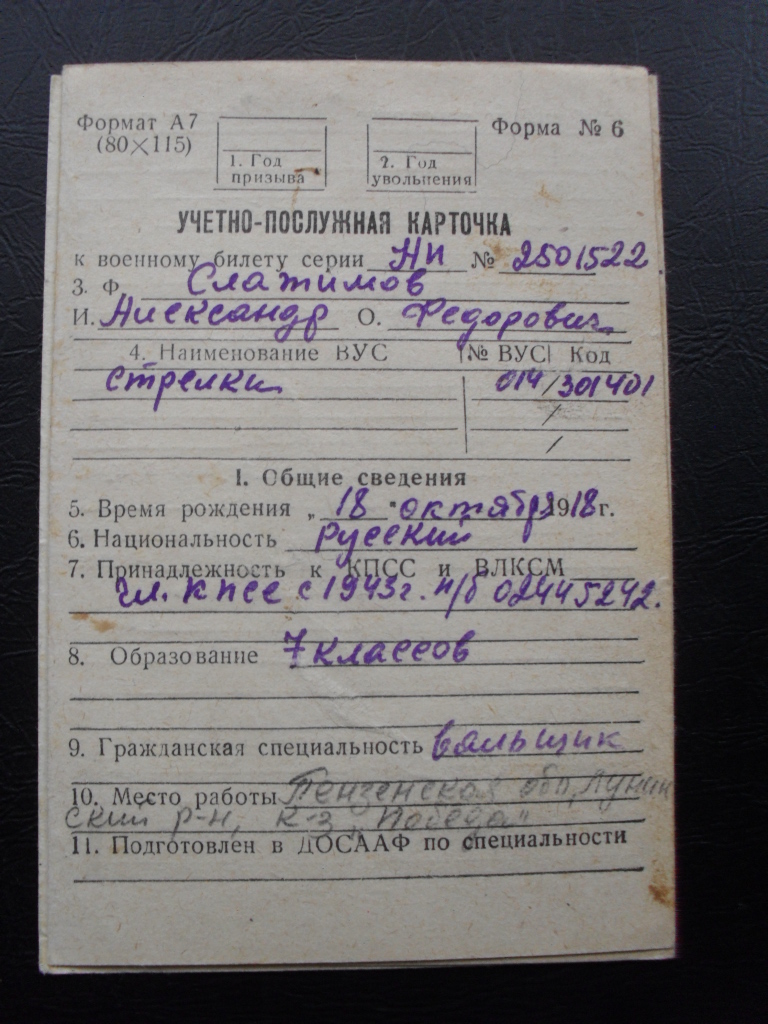 Формат А7
(80×115)
1. Год призыва
2. Год увольнения
Форма № 6
УЧЕТНО-ПОСЛУЖНАЯ КАРТОЧКА
к военному билету серии НП № 2501522
3. Ф. Слатимов
И. Александр О. Федорович
4. Наименование ВУС № ВУС Код
стрелки 014/301401
/
/
I. Общие сведения
5. Время рождения „18" октября 1918 г.
6. Национальность Русский
7. Принадлежность к КПСС и ВЛКСМ
чл. КПСС с 1943 г. п/б 02445242.
8. Образование 7 классов
9. Гражданская специальность вальщик
10. Место работы Пензенская обл, Лунин
ский р-н, к-з „Победа"
11. Подготовлен в ДОСААФ по специальности